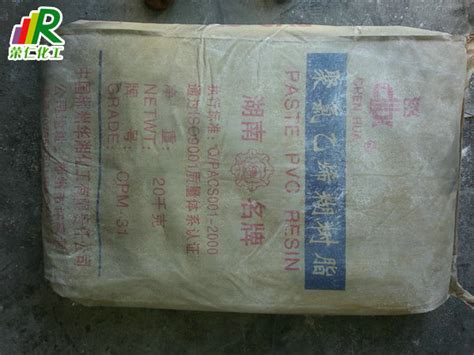 R
荣仁化工
CHEN HUA
聚氯乙烯糊树脂
PASTE PVC RESIN
湖南 名牌
执行标准:
通过ISO9001质量体系认证
净 重: 20千克
NETWT:
牌 号: CPM-31
GRADE: